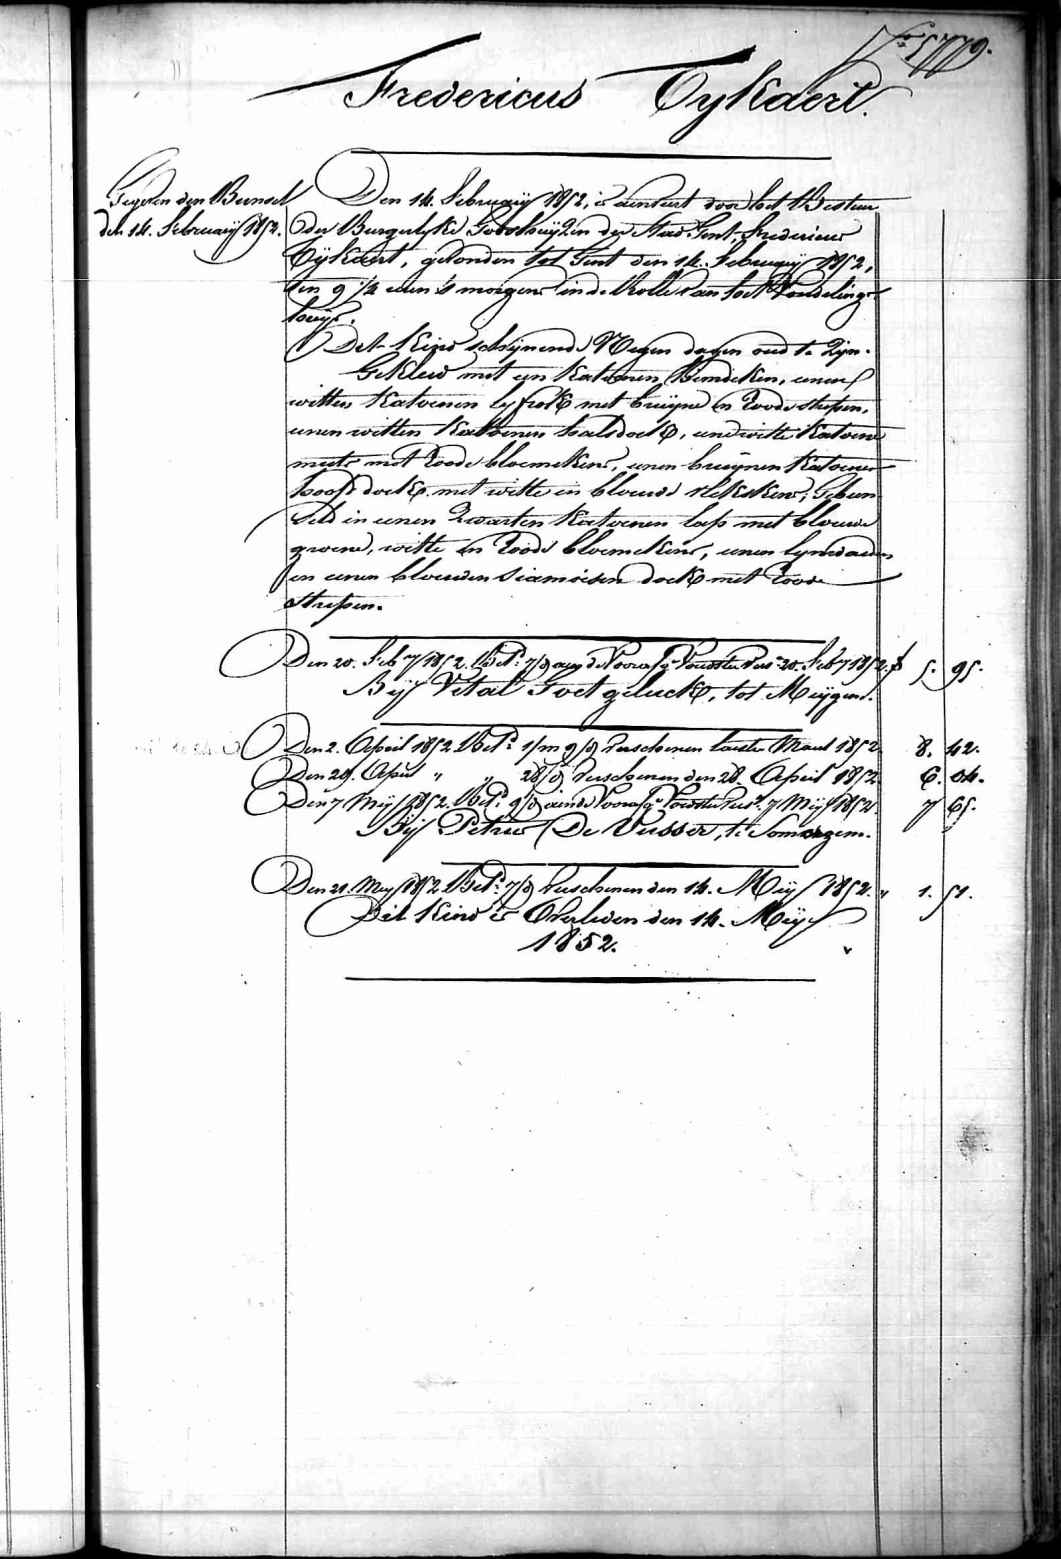 Fredericus Tykaert.
Gegeven den Bunsel
den 14. February 1852.
Den 14. February 1852, is aenveert door het Bestuer
der Burgerlyke Godshuyzen der Stad Gent, Fredericus
Tykaert, gevonden tot Gent den 14. February 1852,
ten 9 1/2 uren 's morgens in de Rolle van het Vondeling-
huys.
Dit Kind schynende Negen dagen oud te Zyn.
Gekleed met een Katoenen Hemdeken, eenen
witten Katoenen lyfrok met bruyne en Roode strepen,
eenen witten Katoenen halsdoek, eene witte Katoene
muts met Roode bloemekens, eenen bruynen Katoenen
hoofddoek met witte en blouwe vlekskens; Gebun-
seld in eenen Zwarten Katoenen lap met blouwe
groene, witte en Roode bloemekens, eenen lynwaeden
en eenen blouwen Siamoisen doek met Roode
strepen.
Den 20. Feby 1852. Bet. 7/d 20. Feby 1852. f 5. 95.
By Vital Goetgeluck, tot Meygem.
Den 2. April 1852. Bet. 1/m 9/d verschenen laeste Maert 1852. 8. 42.
Den 29. April " " 28/d verschenen den 28. April 1852. 6. 04.
Den 7 Mey 1852. Bet. 9/d 7 Mey 1852. 7 65.
By Petrus De Visser, te Somergem.
Den 21. Mey 1852. Bet. 7/d verschenen den 14. Mey 1852. " 1. 51.
Dit Kind is Overleden den 14. Mey
1852.